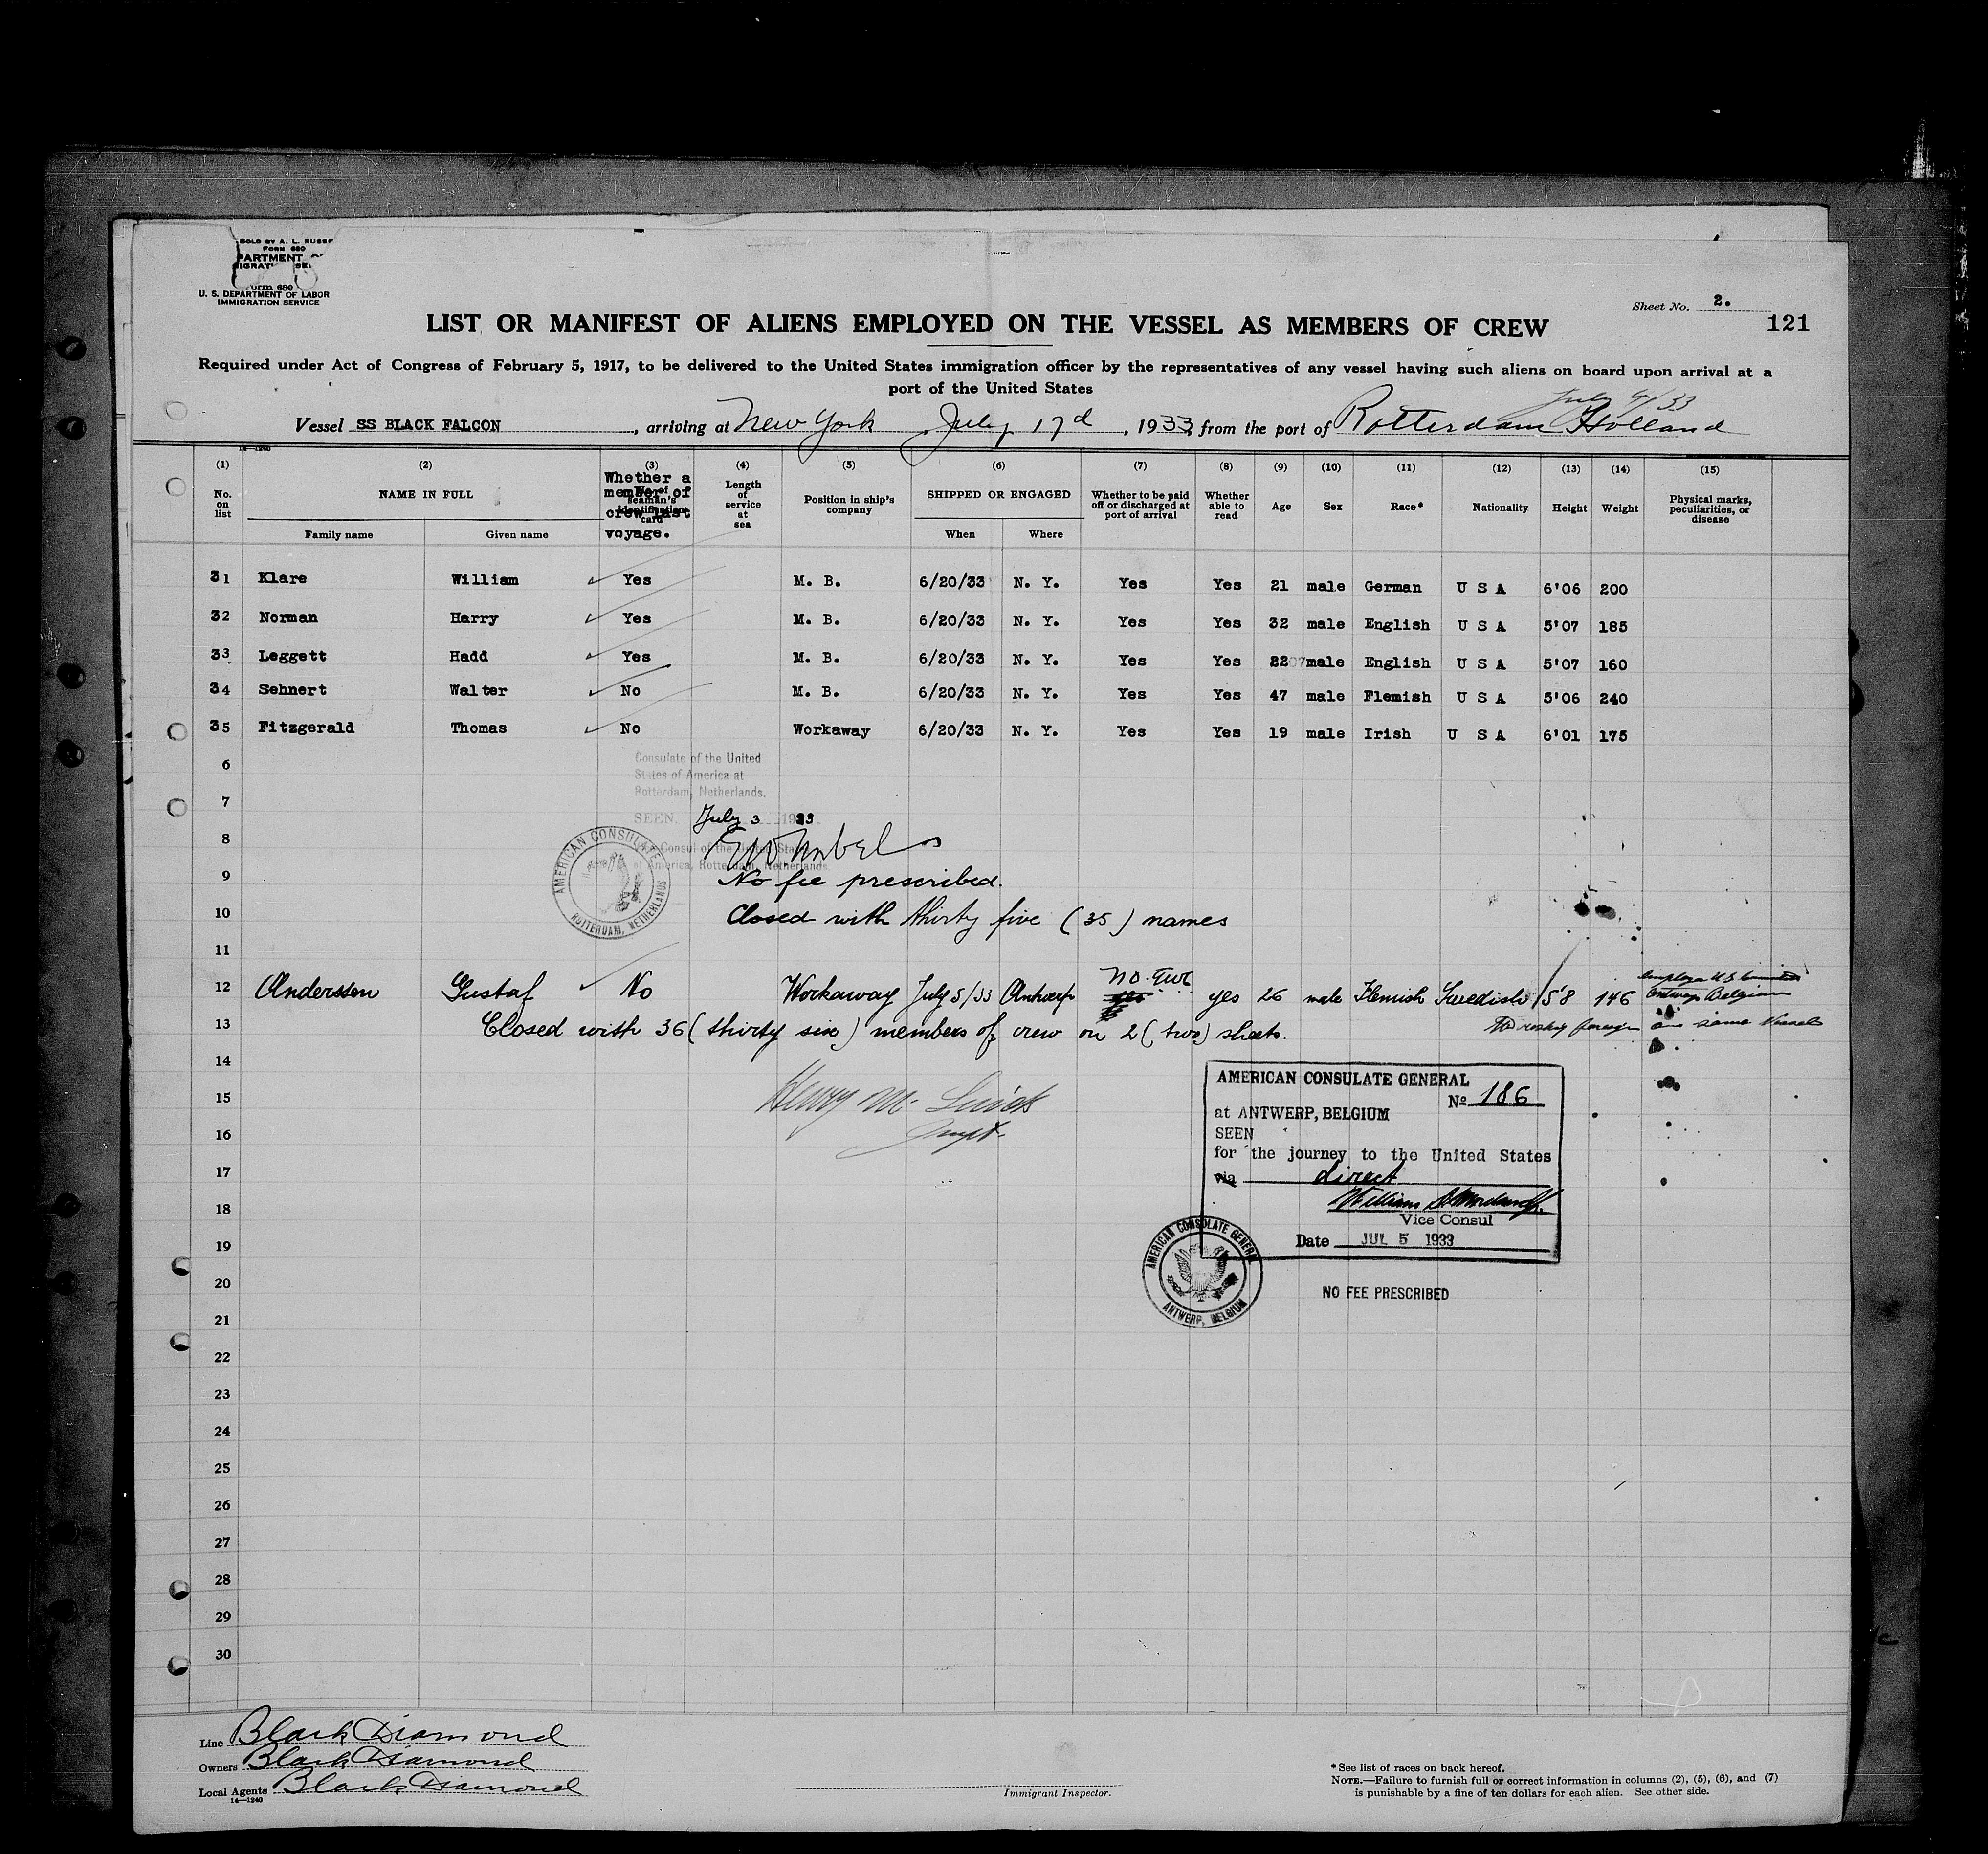 SOLD BY A. L. RUSSE
FORM 680
PARTMENT O
IGRAT SE
orm 680
U. S. DEPARTMENT OF LABOR
IMMIGRATION SERVICE
Sheet No. 2.
121
LIST OR MANIFEST OF ALIENS EMPLOYED ON THE VESSEL AS MEMBERS OF CREW
Required under Act of Congress of February 5, 1917, to be delivered to the United States immigration officer by the representatives of any vessel having such aliens on board upon arrival at a
port of the United States
July 4/33
Vessel SS BLACK FALCON, arriving at New York, July 17d, 1933, from the port of Rotterdam Holland
14—1240
(1) (2) (3) (4) (5) (6) (7) (8) (9) (10) (11) (12) (13) (14) (15)
No. on list NAME IN FULL Whether a member of crew last voyage. No. of seaman's identification card Length of service at sea Position in ship's company SHIPPED OR ENGAGED Whether to be paid off or discharged at port of arrival Whether able to read Age Sex Race* Nationality Height Weight Physical marks, peculiarities, or disease
Family name Given name When Where
31 Klare William Yes M. B. 6/20/33 N. Y. Yes Yes 21 male German U S A 6'06 200
32 Norman Harry Yes M. B. 6/20/33 N. Y. Yes Yes 32 male English U S A 5'07 185
33 Leggett Hadd Yes M. B. 6/20/33 N. Y. Yes Yes 22 male English U S A 5'07 160
34 Sehnert Walter No M. B. 6/20/33 N. Y. Yes Yes 47 male Flemish U S A 5'06 240
35 Fitzgerald Thomas No Workaway 6/20/33 N. Y. Yes Yes 19 male Irish U S A 6'01 175
6
Consulate of the United
States of America at
Rotterdam, Netherlands.
7
SEEN July 3 1933
8
Vice Consul of the United States
of America, Rotterdam, Netherlands
AMERICAN CONSULATE
ROTTERDAM, NETHERLANDS
9 No fee prescribed.
10 Closed with thirty five (35) names
11
12 Anderssen Gustaf No Workaway July 5/33 Antwerp no yes yes 26 male Flemish Swedish 5'8 146
Antwerp Belgium
13 Closed with 36 (thirty six) members of crew on 2 (two) sheets.
foreign on same vessel
14
15 Henry M.
16
17
18
19
20
21
22
23
24
25
26
27
28
29
30
AMERICAN CONSULATE GENERAL
No 186
at ANTWERP, BELGIUM
SEEN
for the journey to the United States
via direct
William
Vice Consul
Date JUL 5 1933
AMERICAN CONSULATE GENERAL
ANTWERP, BELGIUM
NO FEE PRESCRIBED
Line Black Diamond
Owners Black Diamond
Local Agents Black Diamond
14—1240
Immigrant Inspector.
* See list of races on back hereof.
NOTE.—Failure to furnish full or correct information in columns (2), (5), (6), and (7)
is punishable by a fine of ten dollars for each alien. See other side.